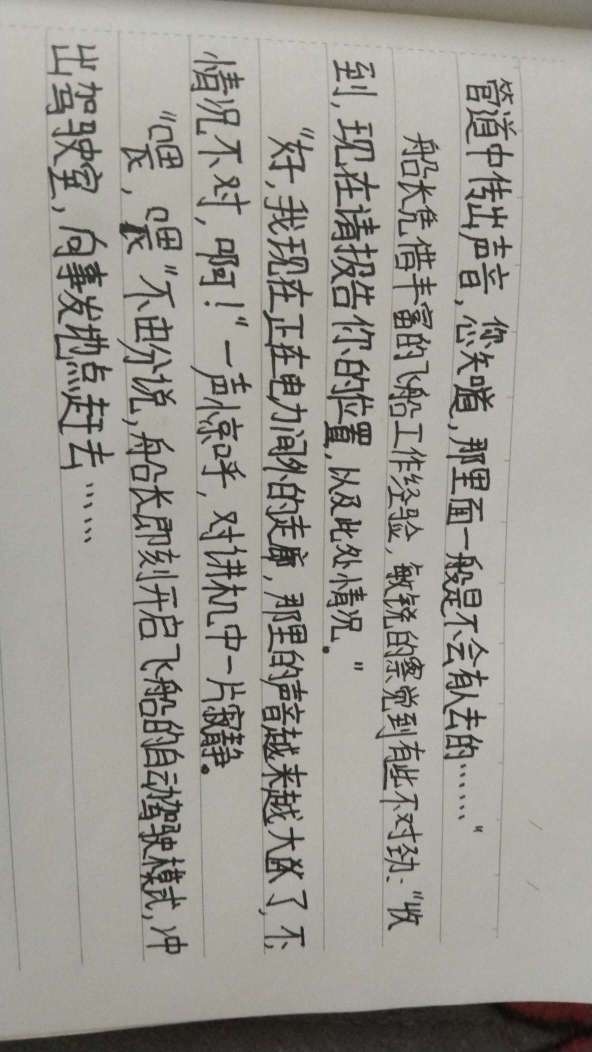 管道中传出声音，您知道，那里面一般是不会有人去的……"
船长凭借丰富的飞船工作经验，敏锐的察觉到有些不对劲："收
到，现在请报告你的位置，以及此处情况。"
"好，我现在正在电力间外的走廊，那里的声音越来越大了，不，
情况不对，啊！"一声惊呼，对讲机中一片寂静。
"喂，喂"不由分说，船长即刻开启飞船的自动驾驶模式，冲
出驾驶室，向事发地点赶去……